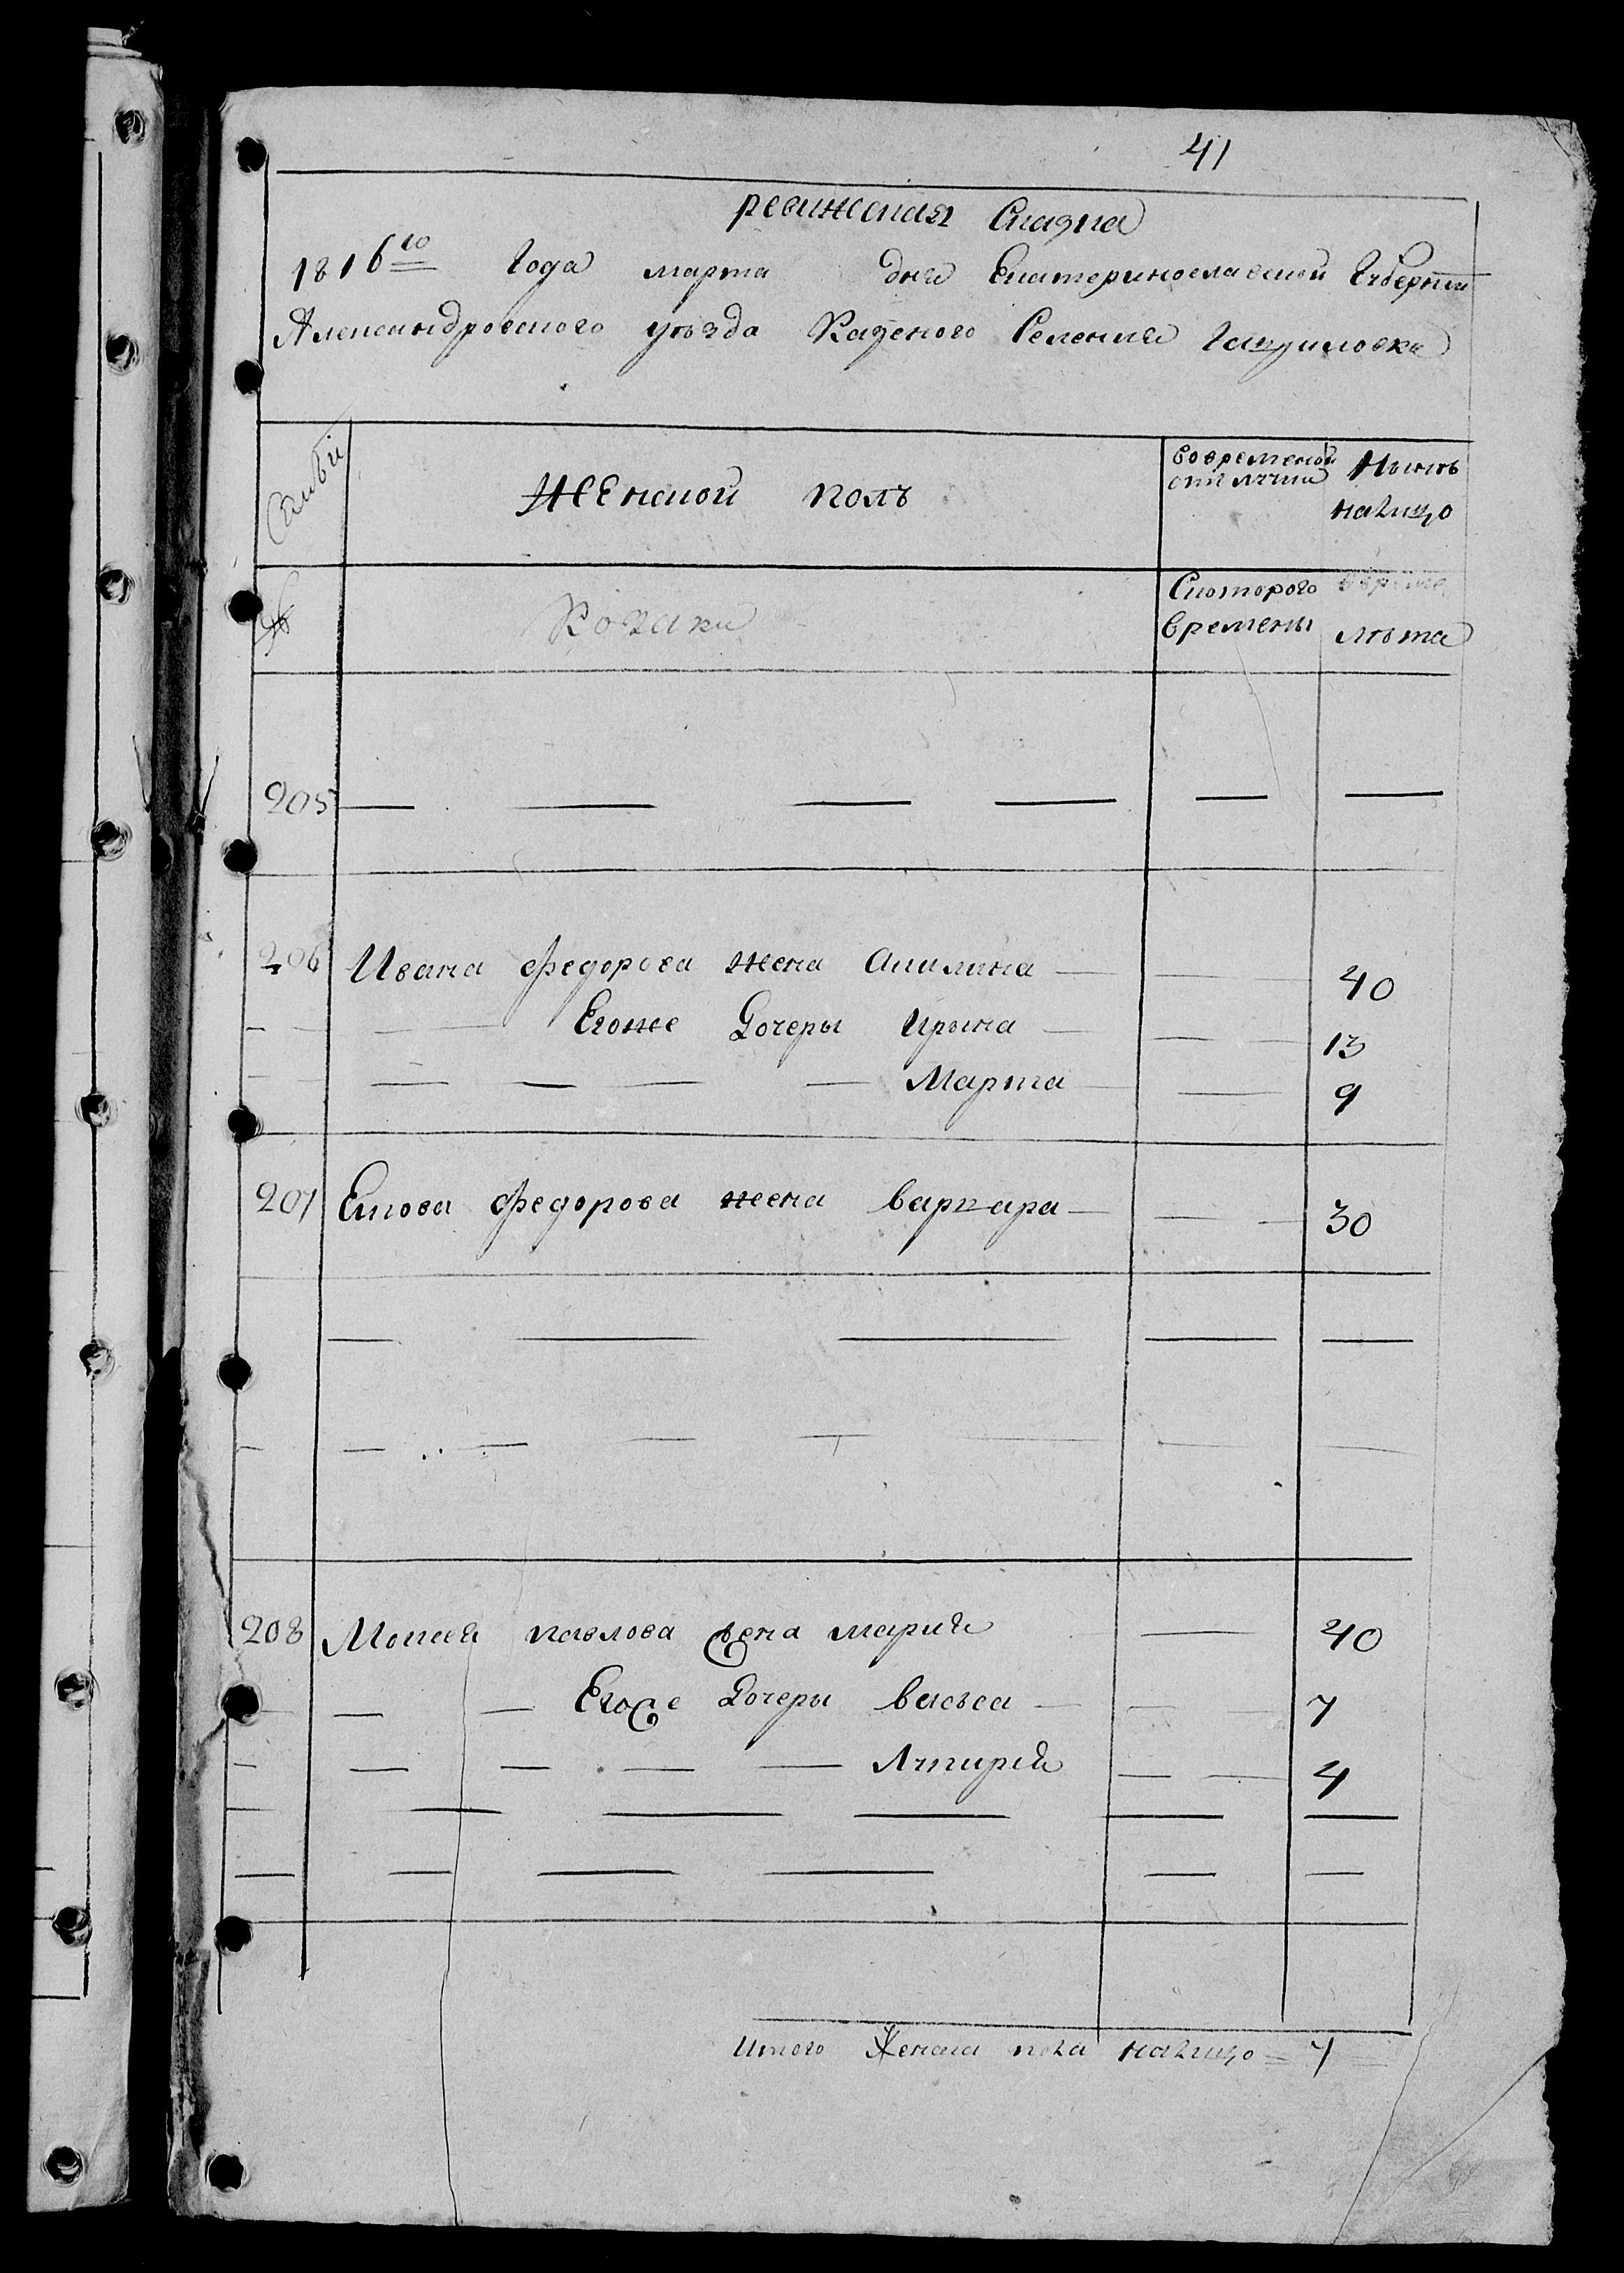 41
ревижская Сказка
1816го Года марта дня Екатеринославской Губернии
Александровского уезда Казеного Селения
Семьи
Женской полъ
вовременой отлучки
Нынѣ налицо
№
Козаки
Скоторого времены
лѣта
205
206 Ивана федорова жена Акилина 40
Егоже Дочеры Ирина 13
Марфа 9
207 федорова жена варвара 30
208 Моисея павлова жена мария 40
Егоже Дочеры васьса 7
4
Итого Женска пола налицо = 7 =